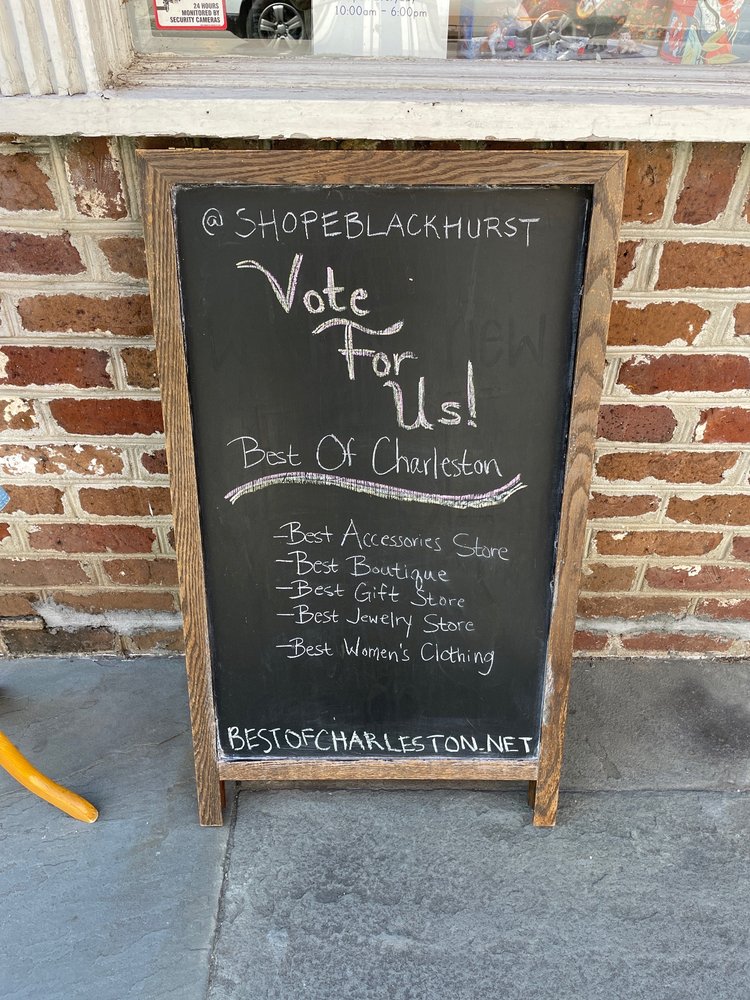 24 HOURS
MONITORED BY
SECURITY CAMERAS
10:00am - 6:00pm
@SHOPEBLACKHURST
Vote
For
Us!
Best Of Charleston
-Best Accessories Store
-Best Boutique
-Best Gift Store
-Best Jewelry Store
-Best Women's Clothing
BESTOFCHARLESTON.NET